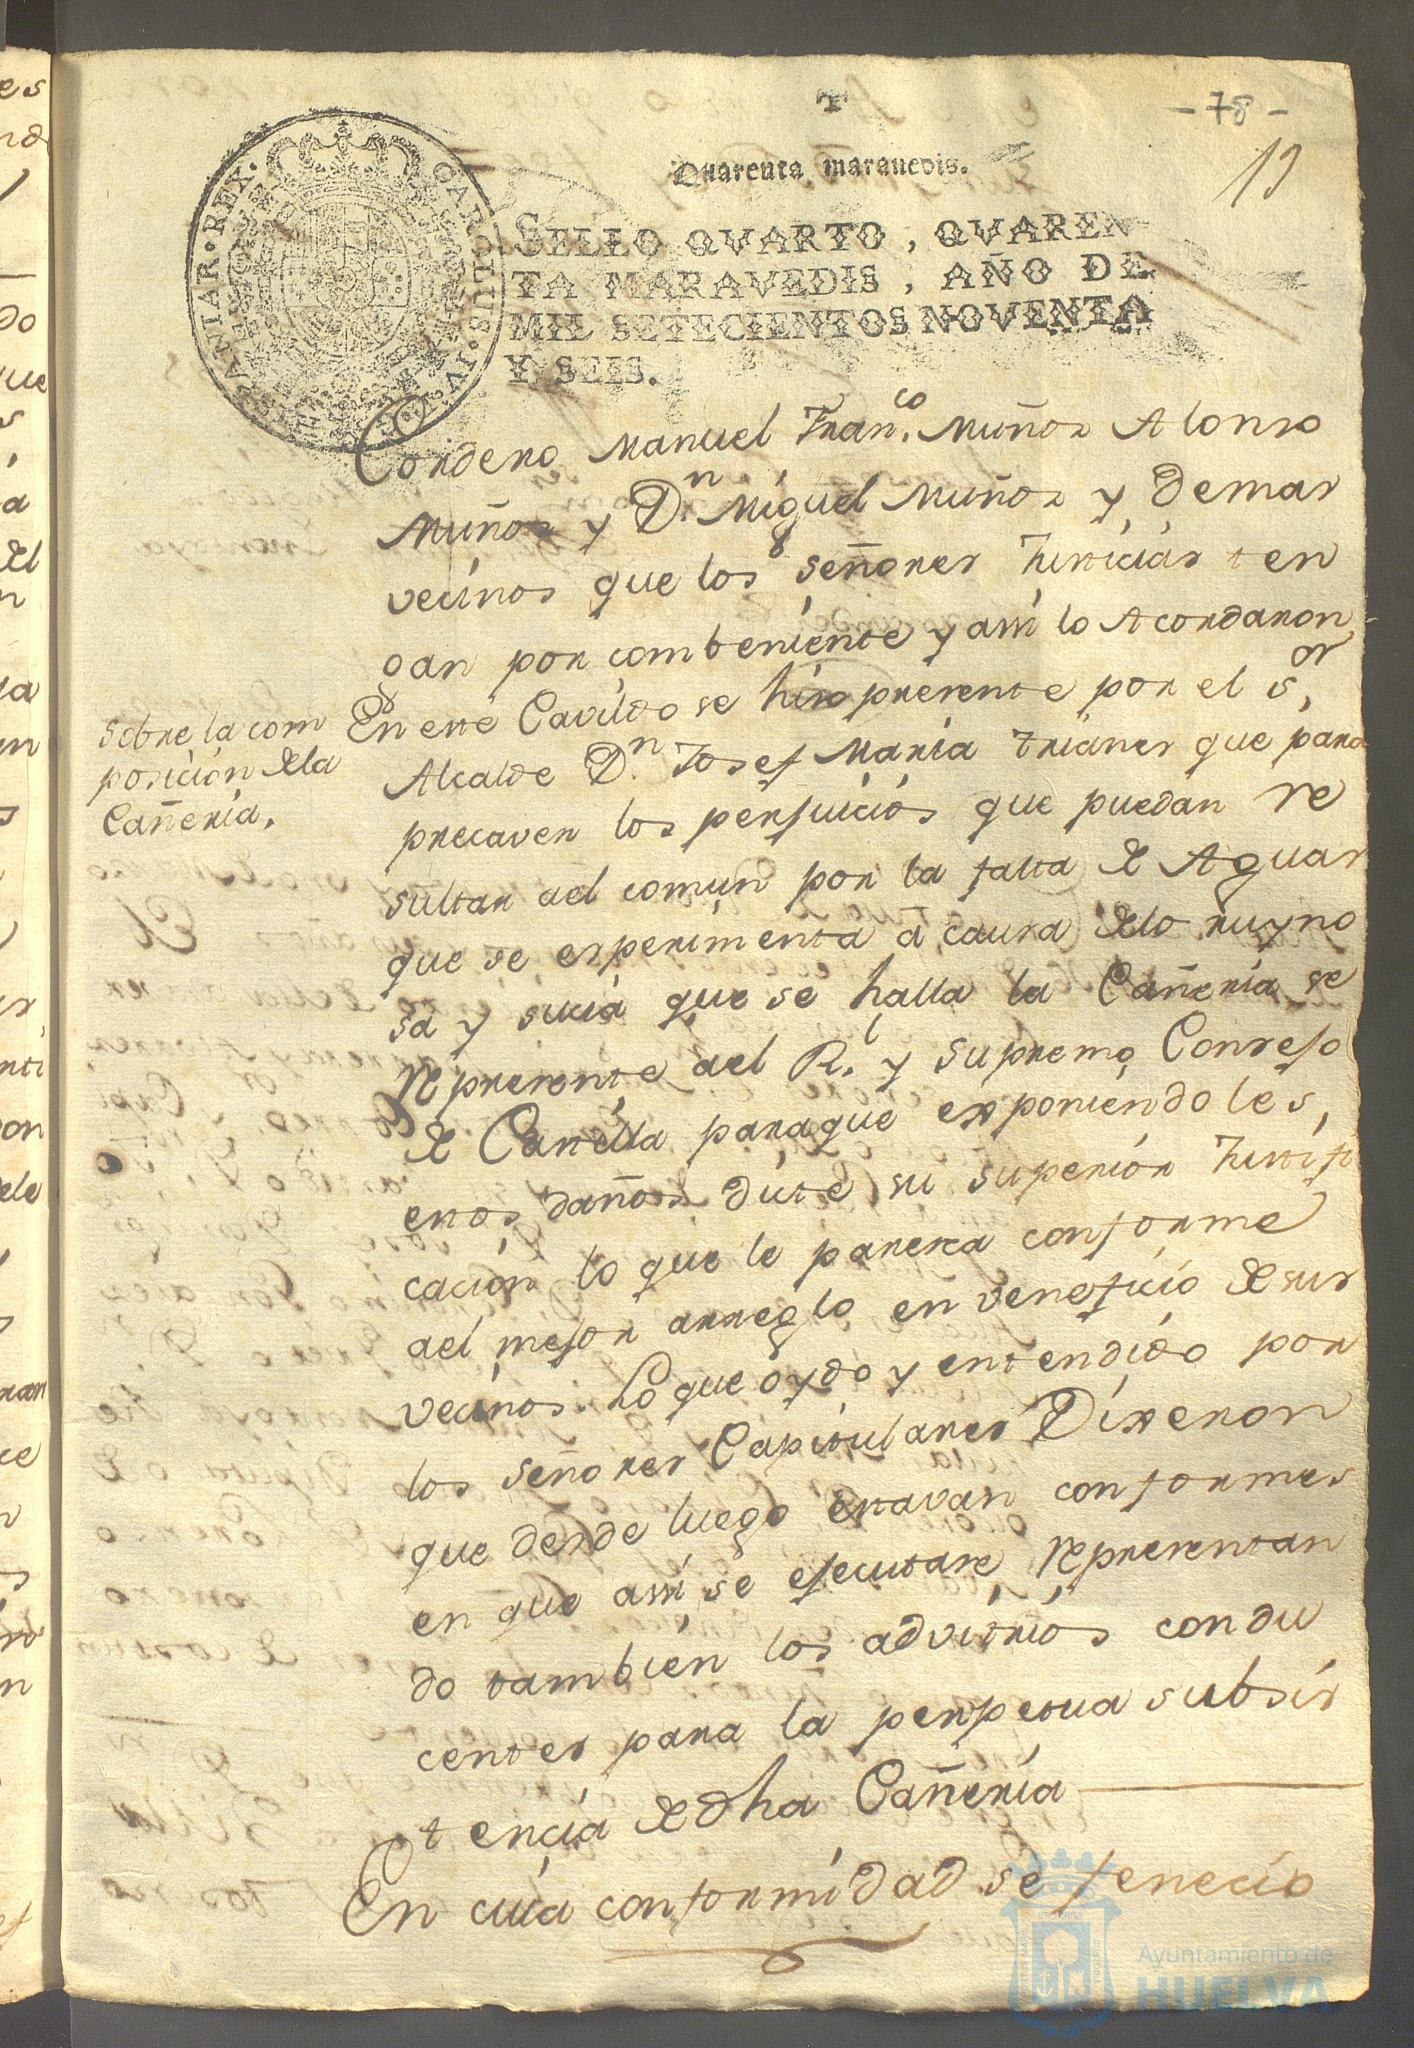 - 78 -
19
Quarenta maravedis.
SELLO QVARTO, QVAREN
TA MARAVEDIS, AÑO DE
MIL SETECIENTOS NOVENTA
Y SEIS.
CAROLUS IV D G HISPANIAR REX
Cordero Manuel Fran.co Muñoz Alonso
Muñoz y D.n Miguel Muñoz y demas
vecinos que los señores Justicias ten
gan por combeniente y assi lo Acordaron
Sobre la com
posicion de la
Cañeria.
En este Cavildo se hizo presente por el s.or
Alcalde D.n Josef Maria Trianes que para
precaver los perjuicios que puedan re
sultar ael comun por la falta de Aguas
que se esperimenta á causa de lo ruyno
sa y sucia que se halla la Cañeria se
represente ael R.l y Supremo Consejo
de Castilla paraque exponiendoles,
estos daños dicte su superior Justifi
cacion lo que le paresca conforme
ael mejor arreglo en veneficio de sus
vecinos. Lo que oydo y entendido por
los señores Capitulares Dixeron
que desde luego estavan conformes
en que assi se ejecutase representan
do tambien los advitrios condu
centes para la perpetua subsis
tencia de dha Cañeria
En cuia conformidad se fenecio
Ayuntamiento de
HUELVA